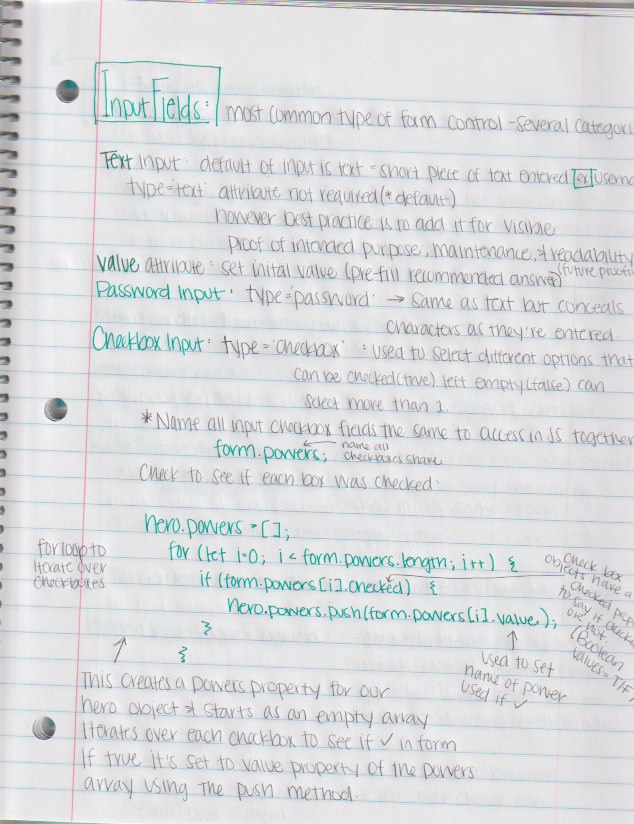 Input Fields: most common type of form control - several categori
Text Input: default of input is text = short piece of text entered [ex] userna
type='text' attribute not required (* default)
however best practice is to add it for visible
proof of intended purpose, maintenance, & readability
(future proofin
value attribute: set inital value (pre-fill recommended answer)
Password Input: type='password' → same as text but conceals
characters as they're entered.
Checkbox Input: type='checkbox' : used to select different options that
can be checked (true) left empty (false) can
select more than 1.
*Name all input checkbox fields the same to access in JS together
form.powers; ← name all
checkboxes share
Check to see if each box was checked:
hero.powers = [];
for loop to
iterate over
checkboxes
for (let i=0; i < form.powers.length; i++) {
if (form.powers[i].checked) {
hero.powers.push(form.powers[i].value);
}
}
check box
objects have a
checked prop
to say if checke
or not
(Boolean
values = T/F)
↑
used to set
name of power
used if ✓
This creates a powers property for our
hero object & starts as an empty array
Iterates over each checkbox to see if ✓ in form
If true it's set to value property of the powers
array using the push method.